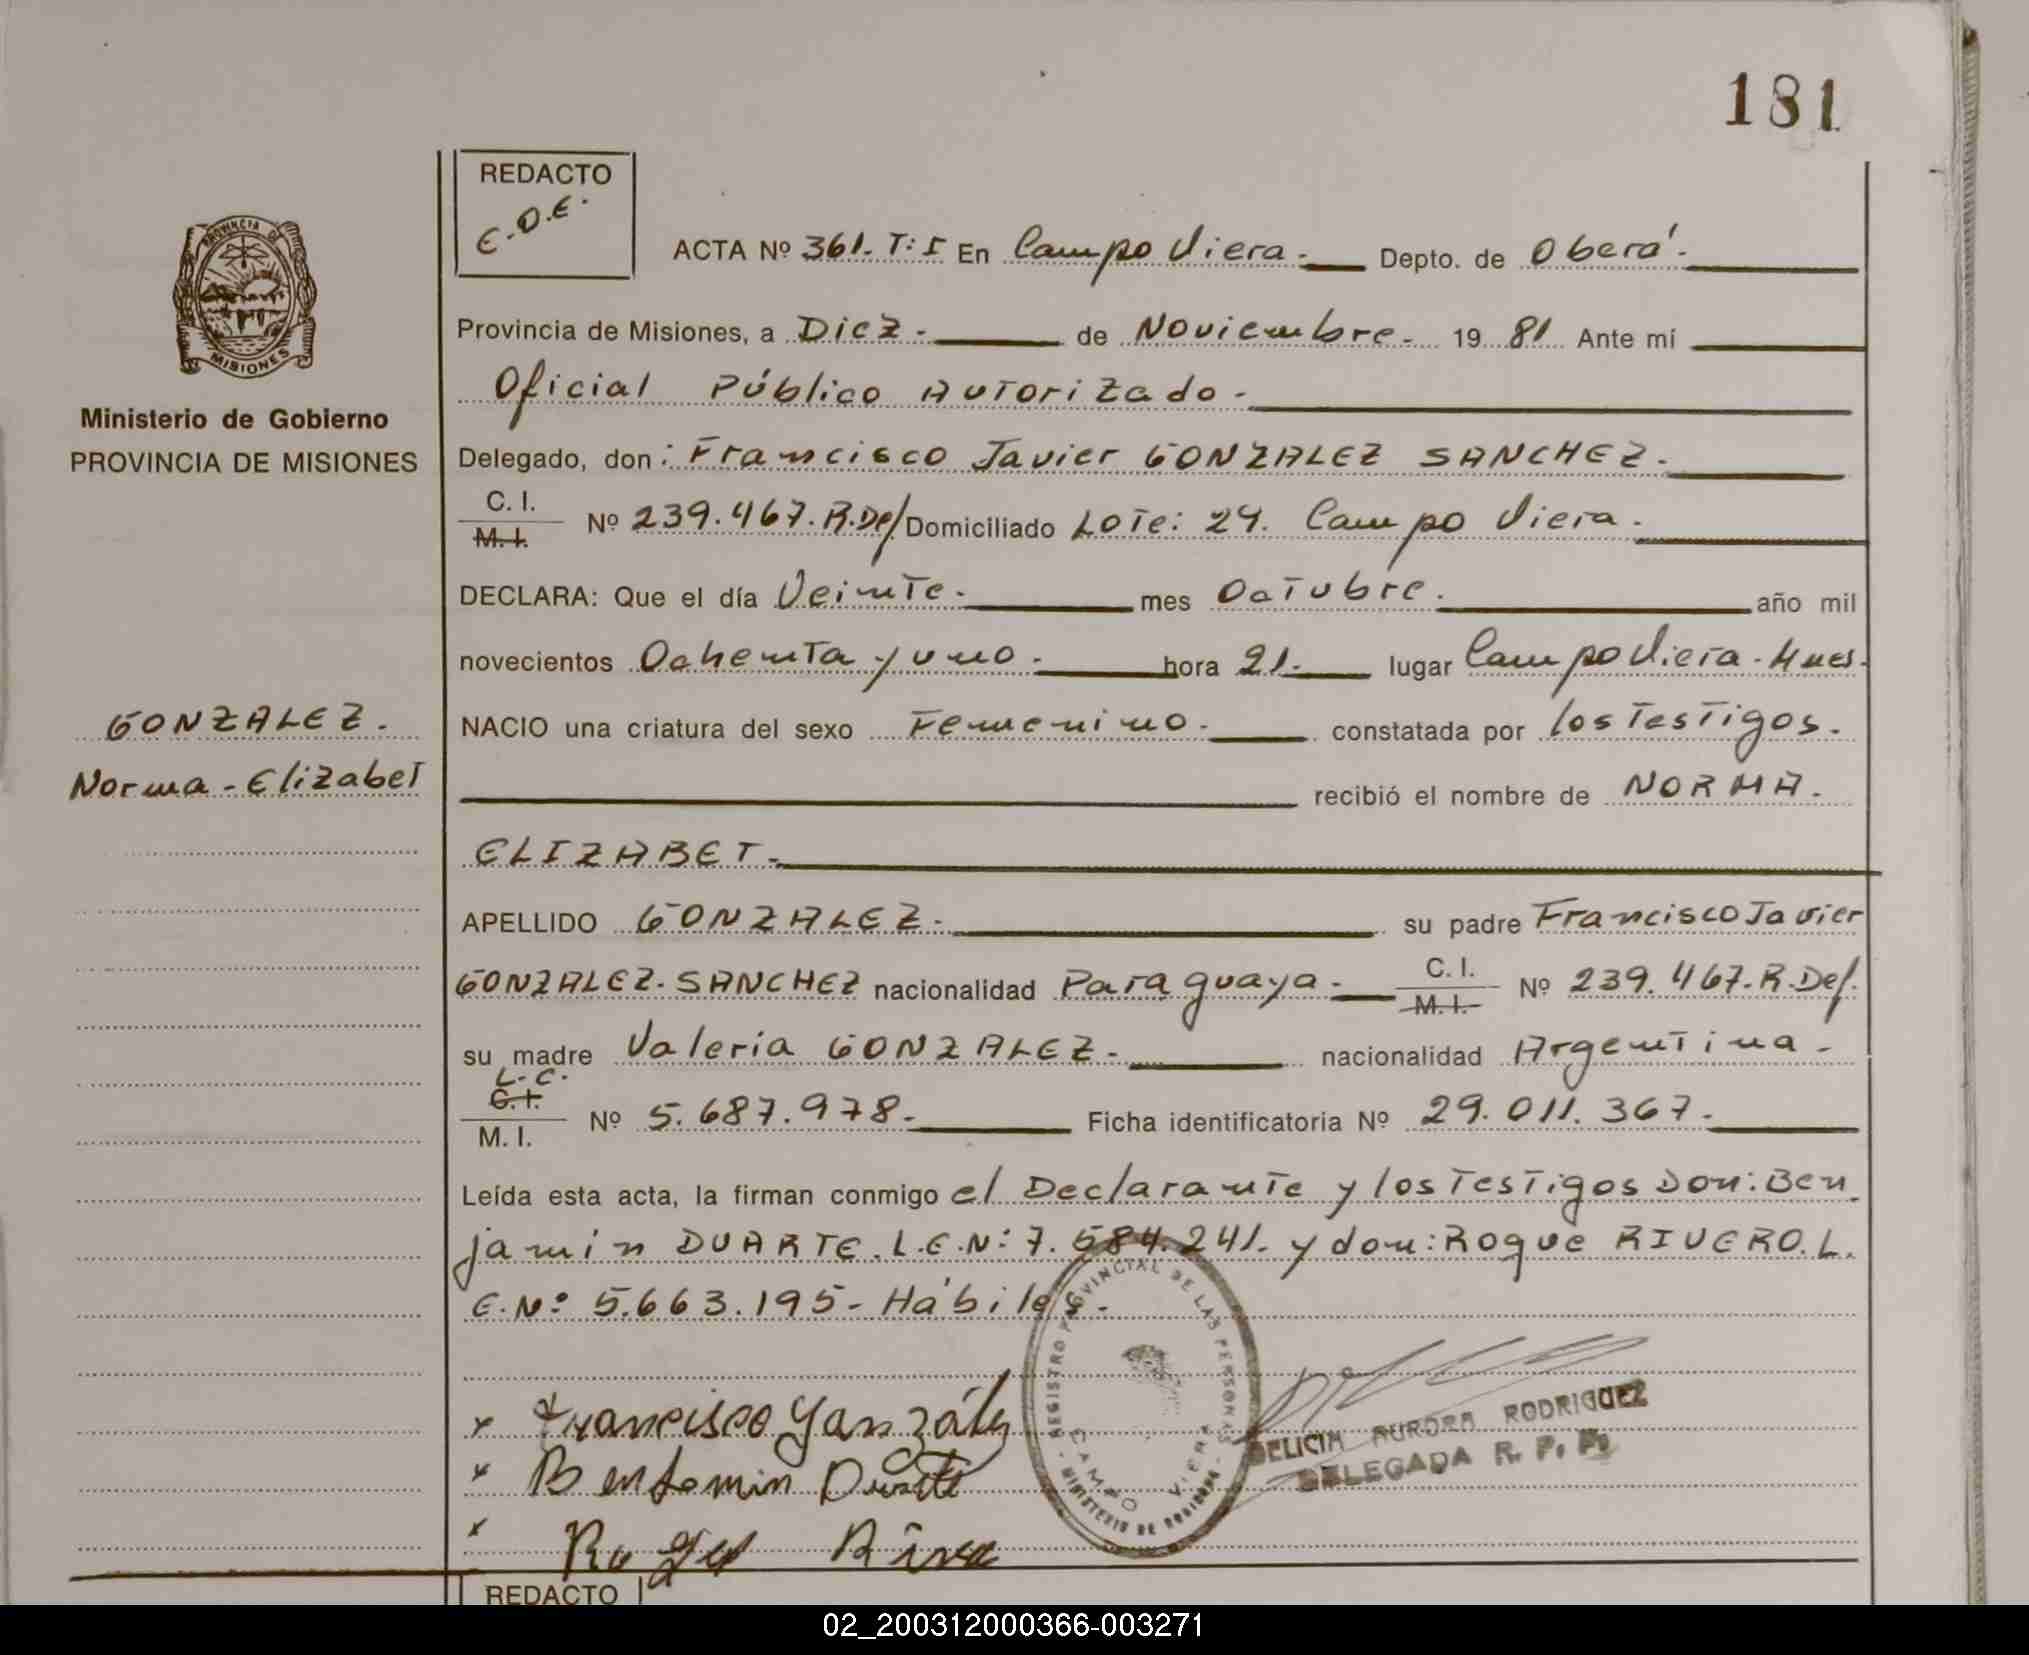 181
REDACTO
E.D.E.
ACTA Nº 361. T: I En Campo Viera.- Depto. de Oberá.-
Provincia de Misiones, a Diez.- de Noviembre.- 1981 Ante mí
Oficial Público Autorizado.-
PROVINCIA DE MISIONES
Ministerio de Gobierno
PROVINCIA DE MISIONES
Delegado, don: Francisco Javier GONZALEZ SANCHEZ.-
C. I.
M. I. Nº 239.467.R.Del Domiciliado Lote: 24. Campo Viera.-
DECLARA: Que el día Veinte.- mes Octubre. año mil
novecientos Ochenta y uno.- hora 21.- lugar Campo Viera-Mnes.
GONZALEZ.
Norma-Elizabet
NACIO una criatura del sexo Femenino.- constatada por los Testigos.-
recibió el nombre de NORMA.-
ELIZABET.-
APELLIDO GONZALEZ.- su padre Francisco Javier
GONZALEZ.SANCHEZ nacionalidad Paraguaya.- C. I. M. I. Nº 239.467.R.Del.
su madre Valeria GONZALEZ.- nacionalidad Argentina.-
L.C.
C. I.
M. I. Nº 5.687.978.- Ficha identificatoria Nº 29.011.367.-
Leída esta acta, la firman conmigo el Declarante y los Testigos Don: Ben
jamin DUARTE. L.E.Nº: 7.584.241. y don: Roque RIVERO. L.
E.Nº: 5.663.195- Hábiles.-
x Francisco González
x Benjamin Duarte
x Roque
REGISTRO PROVINCIAL DE LAS PERSONAS
CAMPO VIERA
MINISTERIO DE GOBIERNO
DELICIA AURORA RODRIGUEZ
DELEGADA R. P. P.
REDACTO
02_200312000366-003271